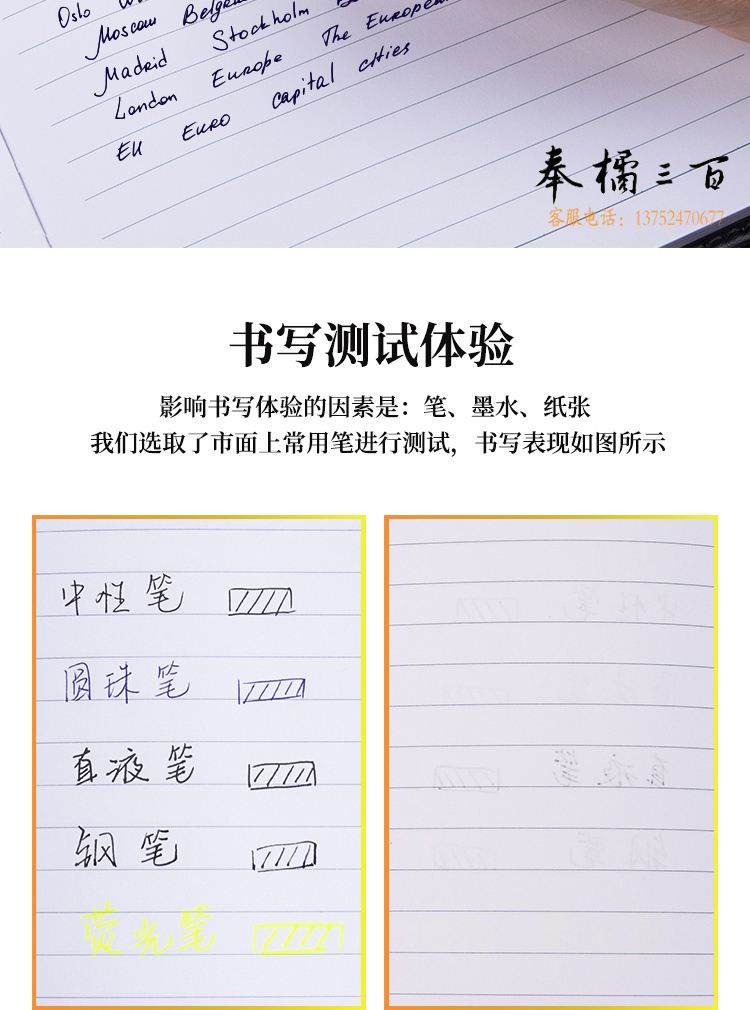 Oslo
Moscow Belgra
Madrid Stockholm
London Europe The European
EU EURO capital cities
奉橘三百
客服电话：13752470677
书写测试体验
影响书写体验的因素是：笔、墨水、纸张
我们选取了市面上常用笔进行测试，书写表现如图所示
中性笔
圆珠笔
直液笔
钢笔
荧光笔